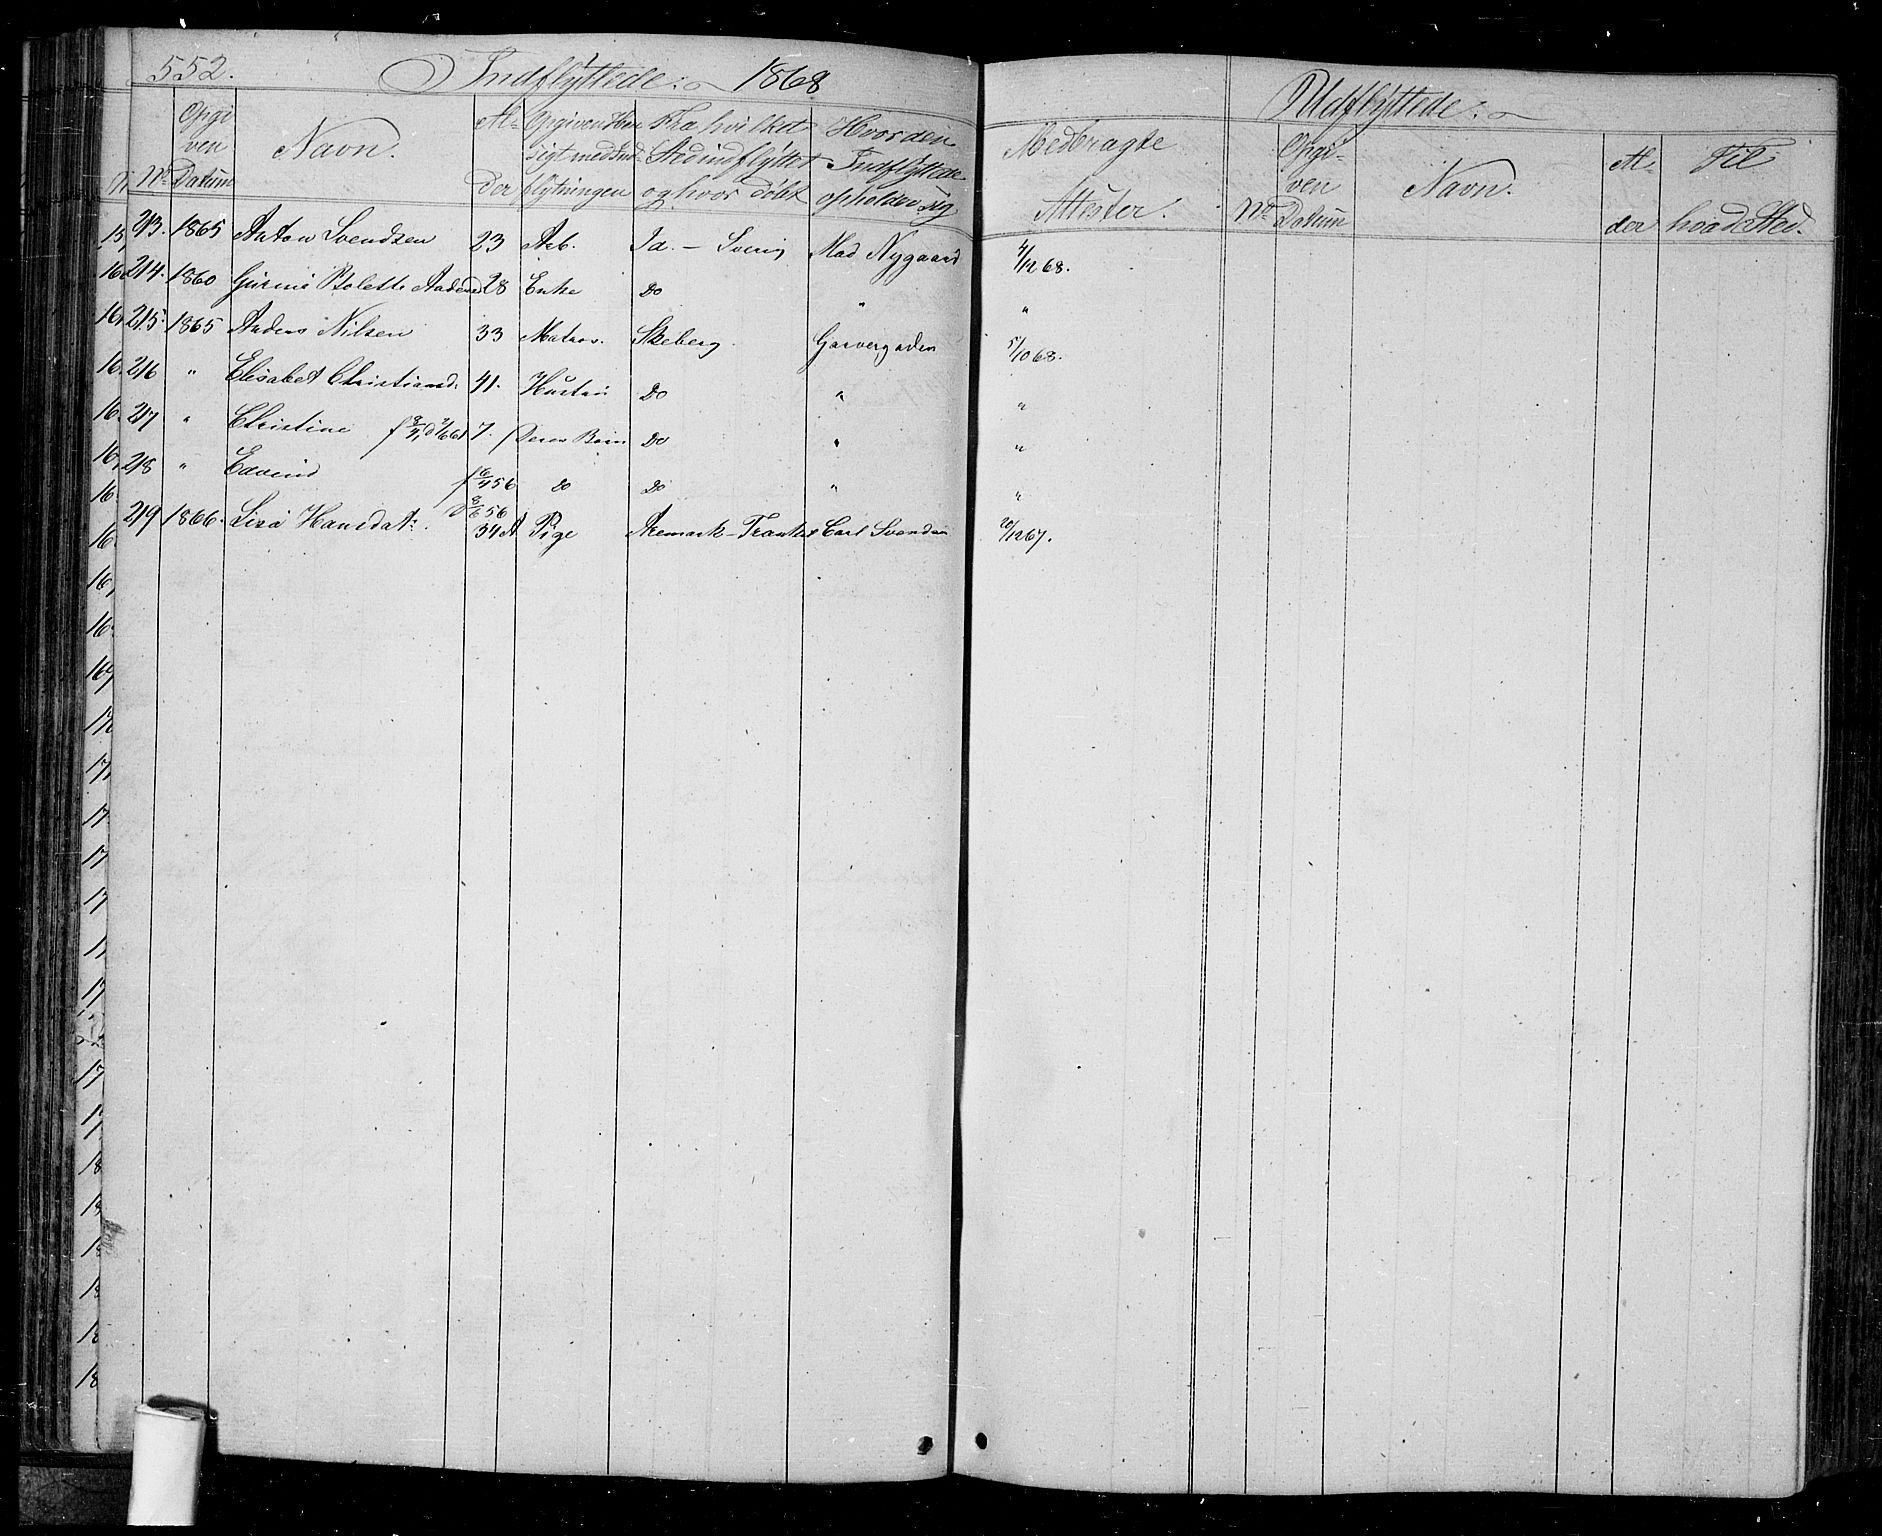 552. Indflyttede. 1868
No Opgiven Datum Navn. Alder Opgiven Hensigt med Indflytningen Fra hvilket Sted indflyttet og hvor døbt Hvor den Indflyttede opholder sig Medbragte Attester.
Udflyttede.
No Opgiven Datum Navn. Alder Til hvad Sted.
213. 1865 Anton Svendsen 23 Arb. Id. — Sverig Mad Nygaard 4/12 68.
214. 1860 Gurine Bolette 28 Enke Do " "
215. 1865 Anders Nilsen 33 Matros. Skeberg. Garvergaden 5/10 68.
216 " Elisabet Christiansd. 41. Hustru Do " "
217 " Christine 7. Deres Barn Do " "
218 " Edvind f 16/4 56 Do Do " "
d 8/6 56
219 1866. Lisa Hansdat: 34 Pige Aremark — Carl Svendsen 20/12 67.